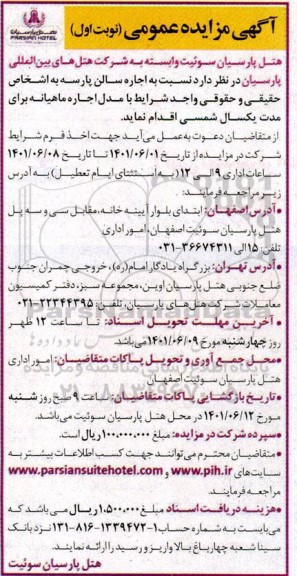 آگهی مزایده عمومی (نوبت اول)
هتل پارسیان
PARSIAN HOTEL
هتل پارسیان سوئیت وابسته به شرکت هتل های بین المللی
پارسیان در نظر دارد نسبت به اجاره سالن پارسه به اشخاص
حقیقی و حقوقی واجد شرایط با مدل اجاره ماهیانه برای
مدت یکسال شمسی اقدام نماید.
از متقاضیان دعوت به عمل می آید جهت اخذ فرم شرایط
شرکت در مزایده از تاریخ ۱۴۰۱/۰۶/۰۱ تا تاریخ ۱۴۰۱/۰۶/۰۸
ساعات اداری ۹ الی ۱۲ (به استثنای ایام تعطیل) به آدرس
زیر مراجعه فرمایند:
•آدرس اصفهان: ابتدای بلوار آیینه خانه، مقابل سی و سه پل
هتل پارسیان سوئیت اصفهان، امور اداری
تلفن: ۱۵ الی ۳۶۶۷۴۳۱۱-۰۳۱
•آدرس تهران: بزرگراه یادگار امام (ره)، خروجی چمران جنوب
ضلع جنوبی هتل پارسیان اوین، مجموعه سبز، دفتر کمیسیون
معاملات شرکت هتل های پارسیان، تلفن: ۲۲۳۴۴۳۹۵-۰۲۱
•آخرین مهلت تحویل اسناد: تا ساعت ۱۲ ظهر
روز چهارشنبه مورخ ۱۴۰۱/۰۶/۰۹ می باشد.
•محل جمع آوری و تحویل پاکات متقاضیان: امور اداری
هتل پارسیان سوئیت اصفهان
•تاریخ بازگشایی پاکات متقاضیان: ساعت ۹ صبح روز شنبه
مورخ ۱۴۰۱/۰۶/۱۲ در محل هتل پارسیان سوئیت می باشد.
•سپرده شرکت در مزایده: مبلغ ۱۰۰.۰۰۰.۰۰۰ ریال است.
•متقاضیان محترم می توانند جهت کسب اطلاعات بیشتر به
سایت های www.pih.ir و www.parsiansuitehotel.com
مراجعه فرمایند.
•هزینه دریافت اسناد مبلغ ۱.۵۰۰.۰۰۰ ریال می باشد که
می بایست به شماره حساب ۱-۱۳۳۹۴۷۲-۸۱۶-۱۳۱ نزد بانک
سینا شعبه چهارباغ بالا واریز و رسید را ارائه نمایند.
هتل پارسیان سوئیت